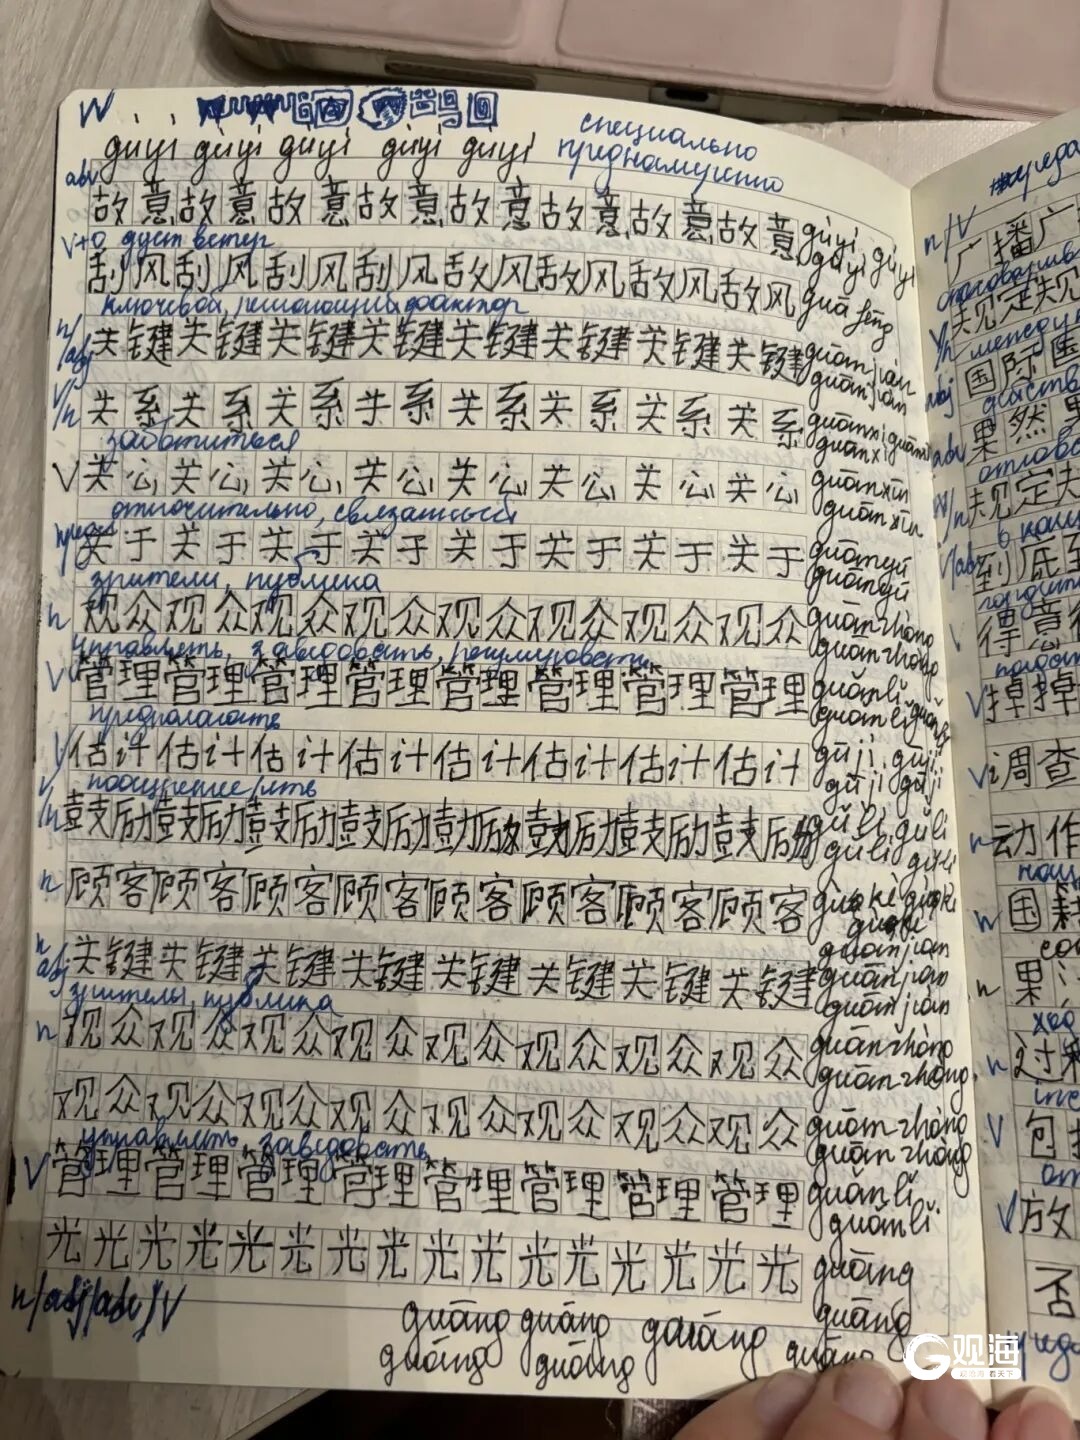 gùyì gùyì gùyì gùyì gùyì специально
adv
故意故意故意故意故意故意故意故意 gùyì, gùyì
gùyì
v+o дуст ветер
刮风刮风刮风刮风敌风敌风敌风敌风 guā fēng
ключевой, решающий фактор
n/adj 关键关键关键关键关键关键关键关键 guānjiàn
guānjiàn
V/n 关系关系关系关系关系关系关系关系 guānxi guānxi
guānxi
заботиться
V 关心关心关心关心关心关心关心关心 guānxīn
guānxīn
относительно, связанный
关于关于关于关于关于关于关于关于 guānyú
guānyú
зрители, публика
n 观众观众观众观众观众观众观众观众 guānzhòng
guānzhòng
управлять, заведовать, регулировать
V 管理管理管理管理管理管理管理管理 guǎnlǐ
guǎnlǐ
предполагать
V 估计估计估计估计估计估计估计估计 gūjì, gūjì
gūjì gūjì
поощрение/лять
V/n 鼓励鼓励鼓励鼓励鼓励鼓励鼓励鼓励 gǔlì gǔlì
gǔlì gǔlì
n 顾客顾客顾客顾客顾客顾客顾客顾客 gùkè
n adj 关键关键关键关键关键关键关键关键 guānjiàn
guānjiàn
guānjiàn
зрители, публика
n 观众观众观众观众观众观众观众观众 guānzhòng
guānzhòng
观众观众观众观众观众观众观众观众 guānzhòng
guānzhòng
управлять, заведовать
V 管理管理管理管理管理管理管理管理 guǎnlǐ
guǎnlǐ
光光光光光光光光光光光光光光光光 guāng
guāng
n/adj/adv/V
guāng guāng guāng guāng
guāng guāng
n/V
广播广
规定规
国际国
adj
果然果
adv
规定规
V/n
到底到
V/adv
得意得
V
V 掉掉
Vi 调查
n 动作
n 国籍
n 果汁
n 过程
V 包括
V 放
否
观海
观沧海 看天下